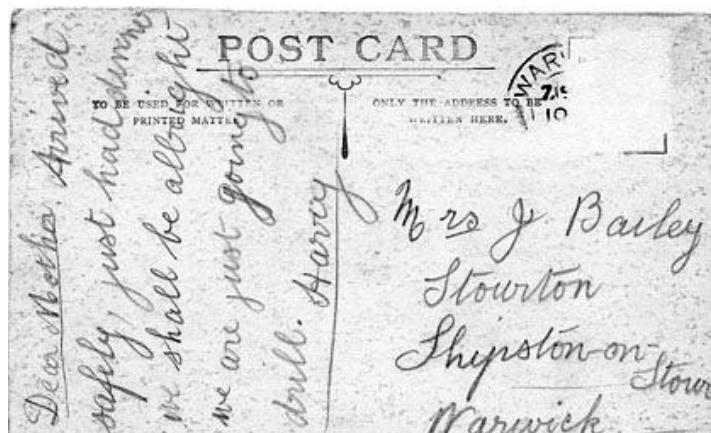 POST CARD
TO BE USED FOR WRITTEN OR
PRINTED MATTER
ONLY THE ADDRESS TO BE
WRITTEN HERE.
WAR
Dear Mother. Arrived
safely, just had dinner
we shall be allright
we are just going to
drill. Harvey
Mrs J Bailey
Stourton
Shipston-on-
Stour
Warwick